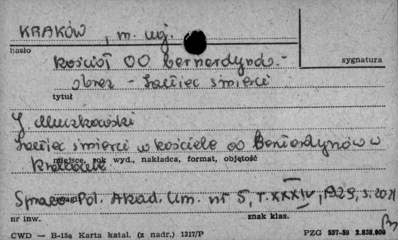 KRAKÓW, m. woj.
hasło
kościół OO bernardynów -
sygnatura
obraz - taniec śmierci
tytuł
J. Muczkowski
Taniec śmierci w kościele oo Bernardynów w
Krakowie
miejsce, rok wyd., nakładca, format, objętość
Sprawo Pol. Akad. Um. nr 5, T. XXXIV, 1929, s. 20
uwagi
nr inw.
znak klas.
CWD — B-15a Karta katal. (z nadr.) 1317/P
PZG 557-59 2.838.000